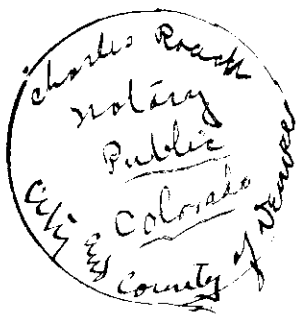 Charles Roach
Notary
Public
Colorado
City and County of Denver